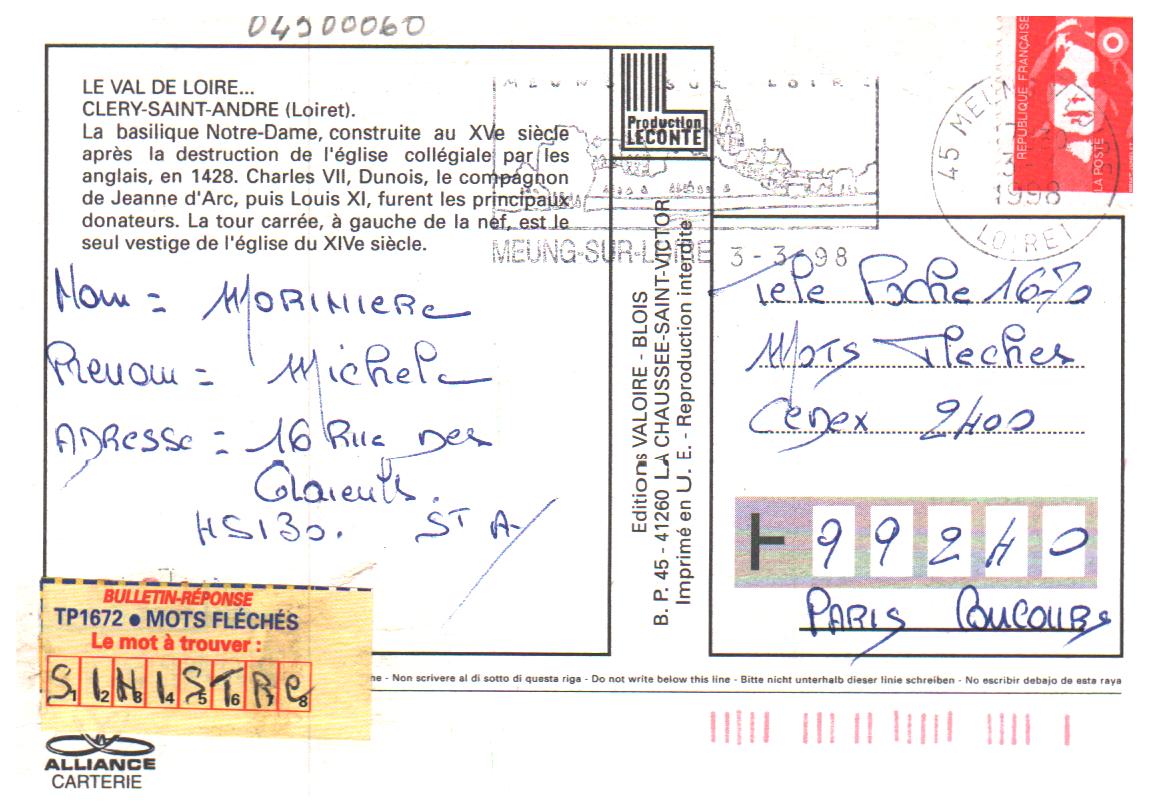 04900060
LE VAL DE LOIRE...
CLERY-SAINT-ANDRE (Loiret).
La basilique Notre-Dame, construite au XVe siècle
après la destruction de l'église collégiale par les
anglais, en 1428. Charles VII, Dunois, le compagnon
de Jeanne d'Arc, puis Louis XI, furent les principaux
donateurs. La tour carrée, à gauche de la nef, est le
seul vestige de l'église du XIVe siècle.
Nom = MORINIERe
Prenom = Michele
ADResse = 16 Rue Des
HS130. ST A-
BULLETIN-RÉPONSE
TP1672 ● MOTS FLÉCHÉS
Le mot à trouver :
SINISTRe
1 2 3 4 5 6 7 8
ALLIANCE
CARTERIE
Production
LECONTE
MEUNG SUR LOIRE
MEUNG-SUR-LOIRE 3-3-98
Editions VALOIRE - BLOIS
B. P. 45 - 41260 LA CHAUSSEE-SAINT-VICTOR
Imprimé en U. E. - Reproduction interdite
REPUBLIQUE FRANÇAISE
LA POSTE
45 MEUNG
1998
LOIRET
Tele Poche 1670
Mots Fleches
CeDex 2400
99240
PARIS Concours
- Non scrivere al di sotto di questa riga - Do not write below this line - Bitte nicht unterhalb dieser linie schreiben - No escribir debajo de esta raya